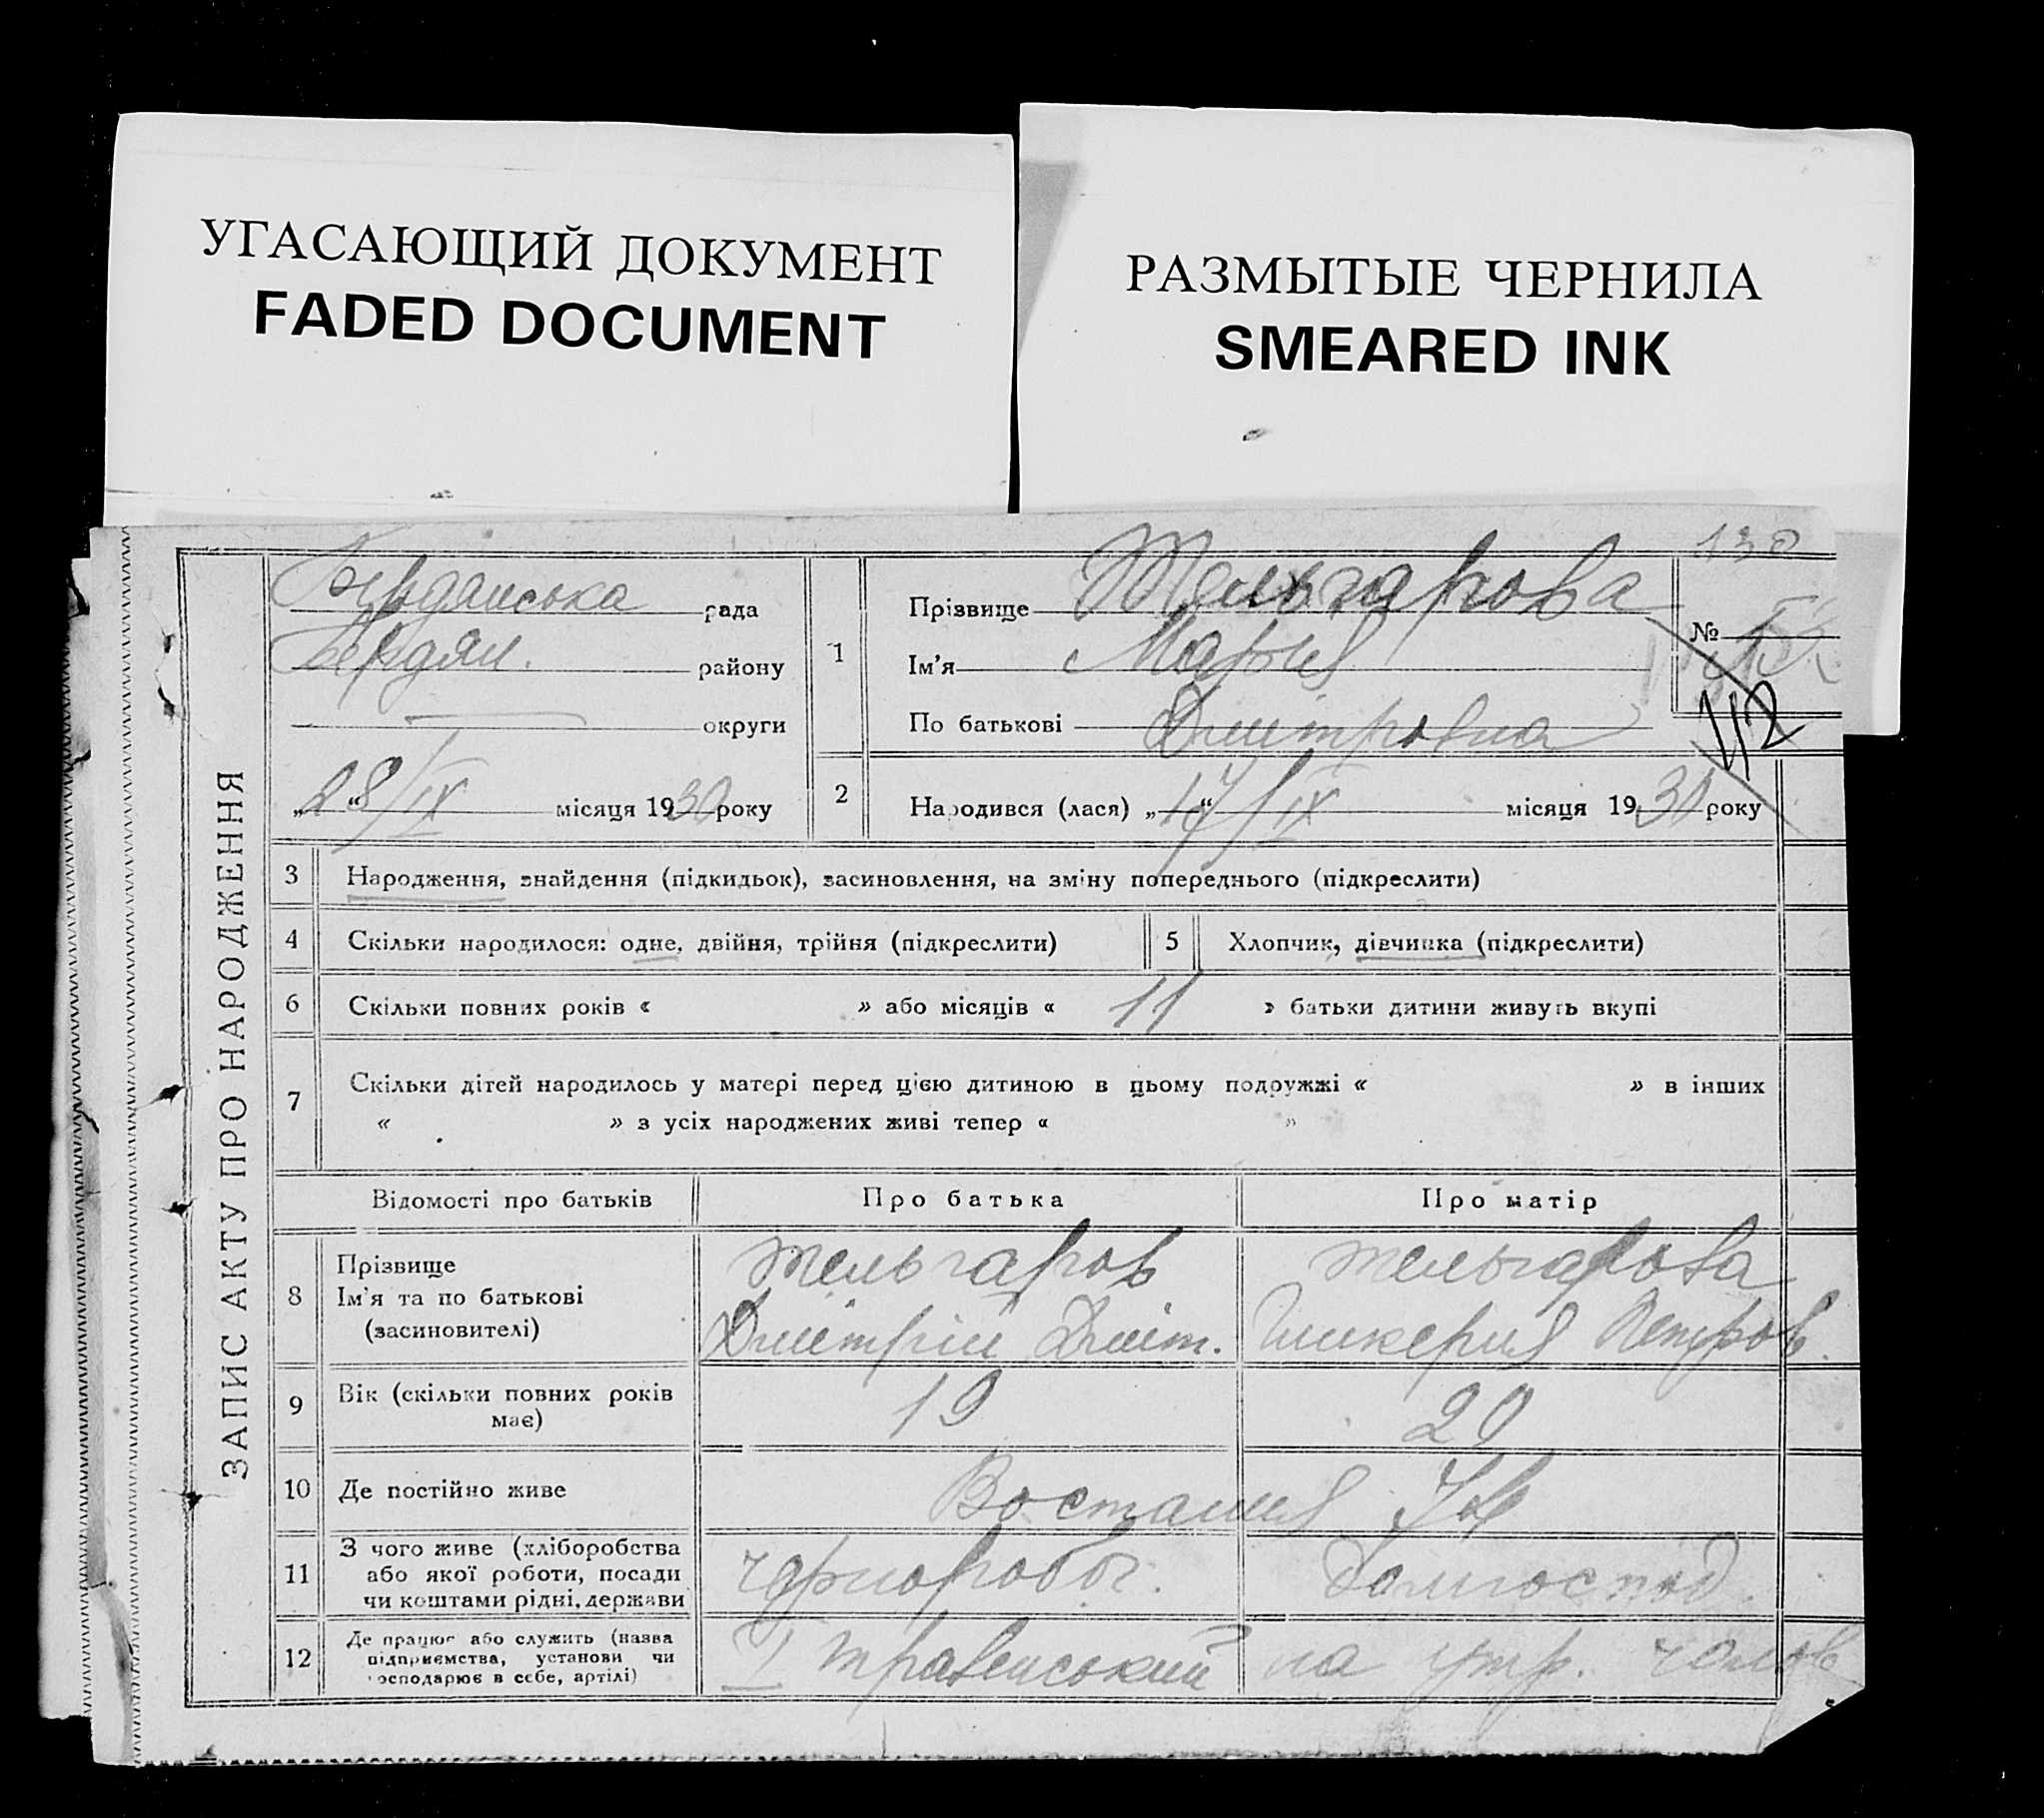 УГАСАЮЩИЙ ДОКУМЕНТ
FADED DOCUMENT
РАЗМЫТЫЕ ЧЕРНИЛА
SMEARED INK
130
ЗАПИС АКТУ ПРО НАРОДЖЕННЯ
Бердянська рада
Бердян. району
округи
„28“/IX місяця 1930 року
1
Прізвище Тельгарова
Ім'я Мария
По батькові Дмитровна
№
112
2 Народився (лася) „17“/IX місяця 1930 року
3 Народження, знайдення (підкидьок), засиновлення, на зміну попереднього (підкреслити)
4 Скільки народилося: одне, двійня, трійня (підкреслити)
5 Хлопчик, дівчинка (підкреслити)
6 Скільки повних років « » або місяців « 11 » батьки дитини живуть вкупі
7 Скільки дітей народилось у матері перед цією дитиною в цьому подружжі « » в інших
« » з усіх народжених живі тепер « »
Відомості про батьків Про батька Про матір
8 Прізвище Тельгаров Тельгарова
Ім'я та по батькові Дмітрій Дміт. Гликерия Петров.
(засновителі)
9 Вік (скільки повних років має) 19 20
10 Де постійно живе Востания
11 З чого живе (хліборобства
або якої роботи, посади
чи коштами рідні, держави
чорнороб. домгоспод.
12 Де працює або служить (назва
підприємства, установи чи
господарює в себе, артілі)
I травенський на утр. чолов